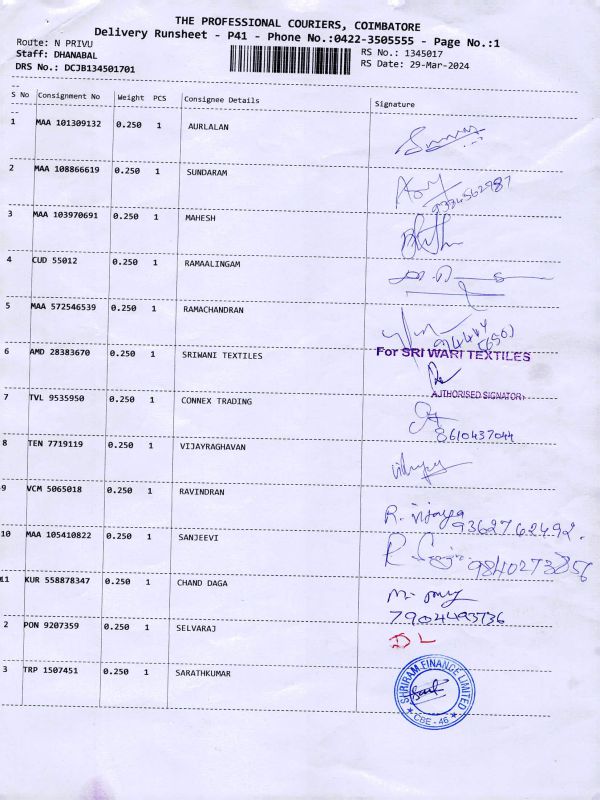 THE PROFESSIONAL COURIERS, COIMBATORE
Delivery Runsheet - P41 - Phone No.:0422-3505555 - Page No.:1
Route: N PRIVU
RS No.: 1345017
Staff: DHANABAL
RS Date: 29-Mar-2024
DRS No.: DCJB134501701
S No Consignment No Weight PCS Consignee Details Signature
1 MAA 101309132 0.250 1 AURLALAN
2 MAA 108866619 0.250 1 SUNDARAM
3 MAA 103970691 0.250 1 MAHESH
4 CUD 55012 0.250 1 RAMAALINGAM
5 MAA 572546539 0.250 1 RAMACHANDRAN
6 AMD 28383670 0.250 1 SRIWANI TEXTILES
For SRI WARI TEXTILES
AUTHORISED SIGNATORY
7 TVL 9535950 0.250 1 CONNEX TRADING
8610437044
8 TEN 7719119 0.250 1 VIJAYRAGHAVAN
9 VCM 5065018 0.250 1 RAVINDRAN
R. Vijaya
9362762492.
10 MAA 105410822 0.250 1 SANJEEVI
9840273856
11 KUR 558878347 0.250 1 CHAND DAGA
7904493736
2 PON 9207359 0.250 1 SELVARAJ
DL
3 TRP 1507451 0.250 1 SARATHKUMAR
SHRIRAM FINANCE LIMITED
* CBE - 46 *